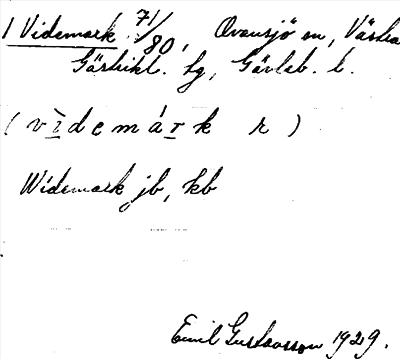 1 Videmark 71/80, Ovansjö sn, Västra
Gästrikl. hg, Gävleb. l.
(vìdemárk r)
Widemark jb, kb
Emil Gustavsson 1929.